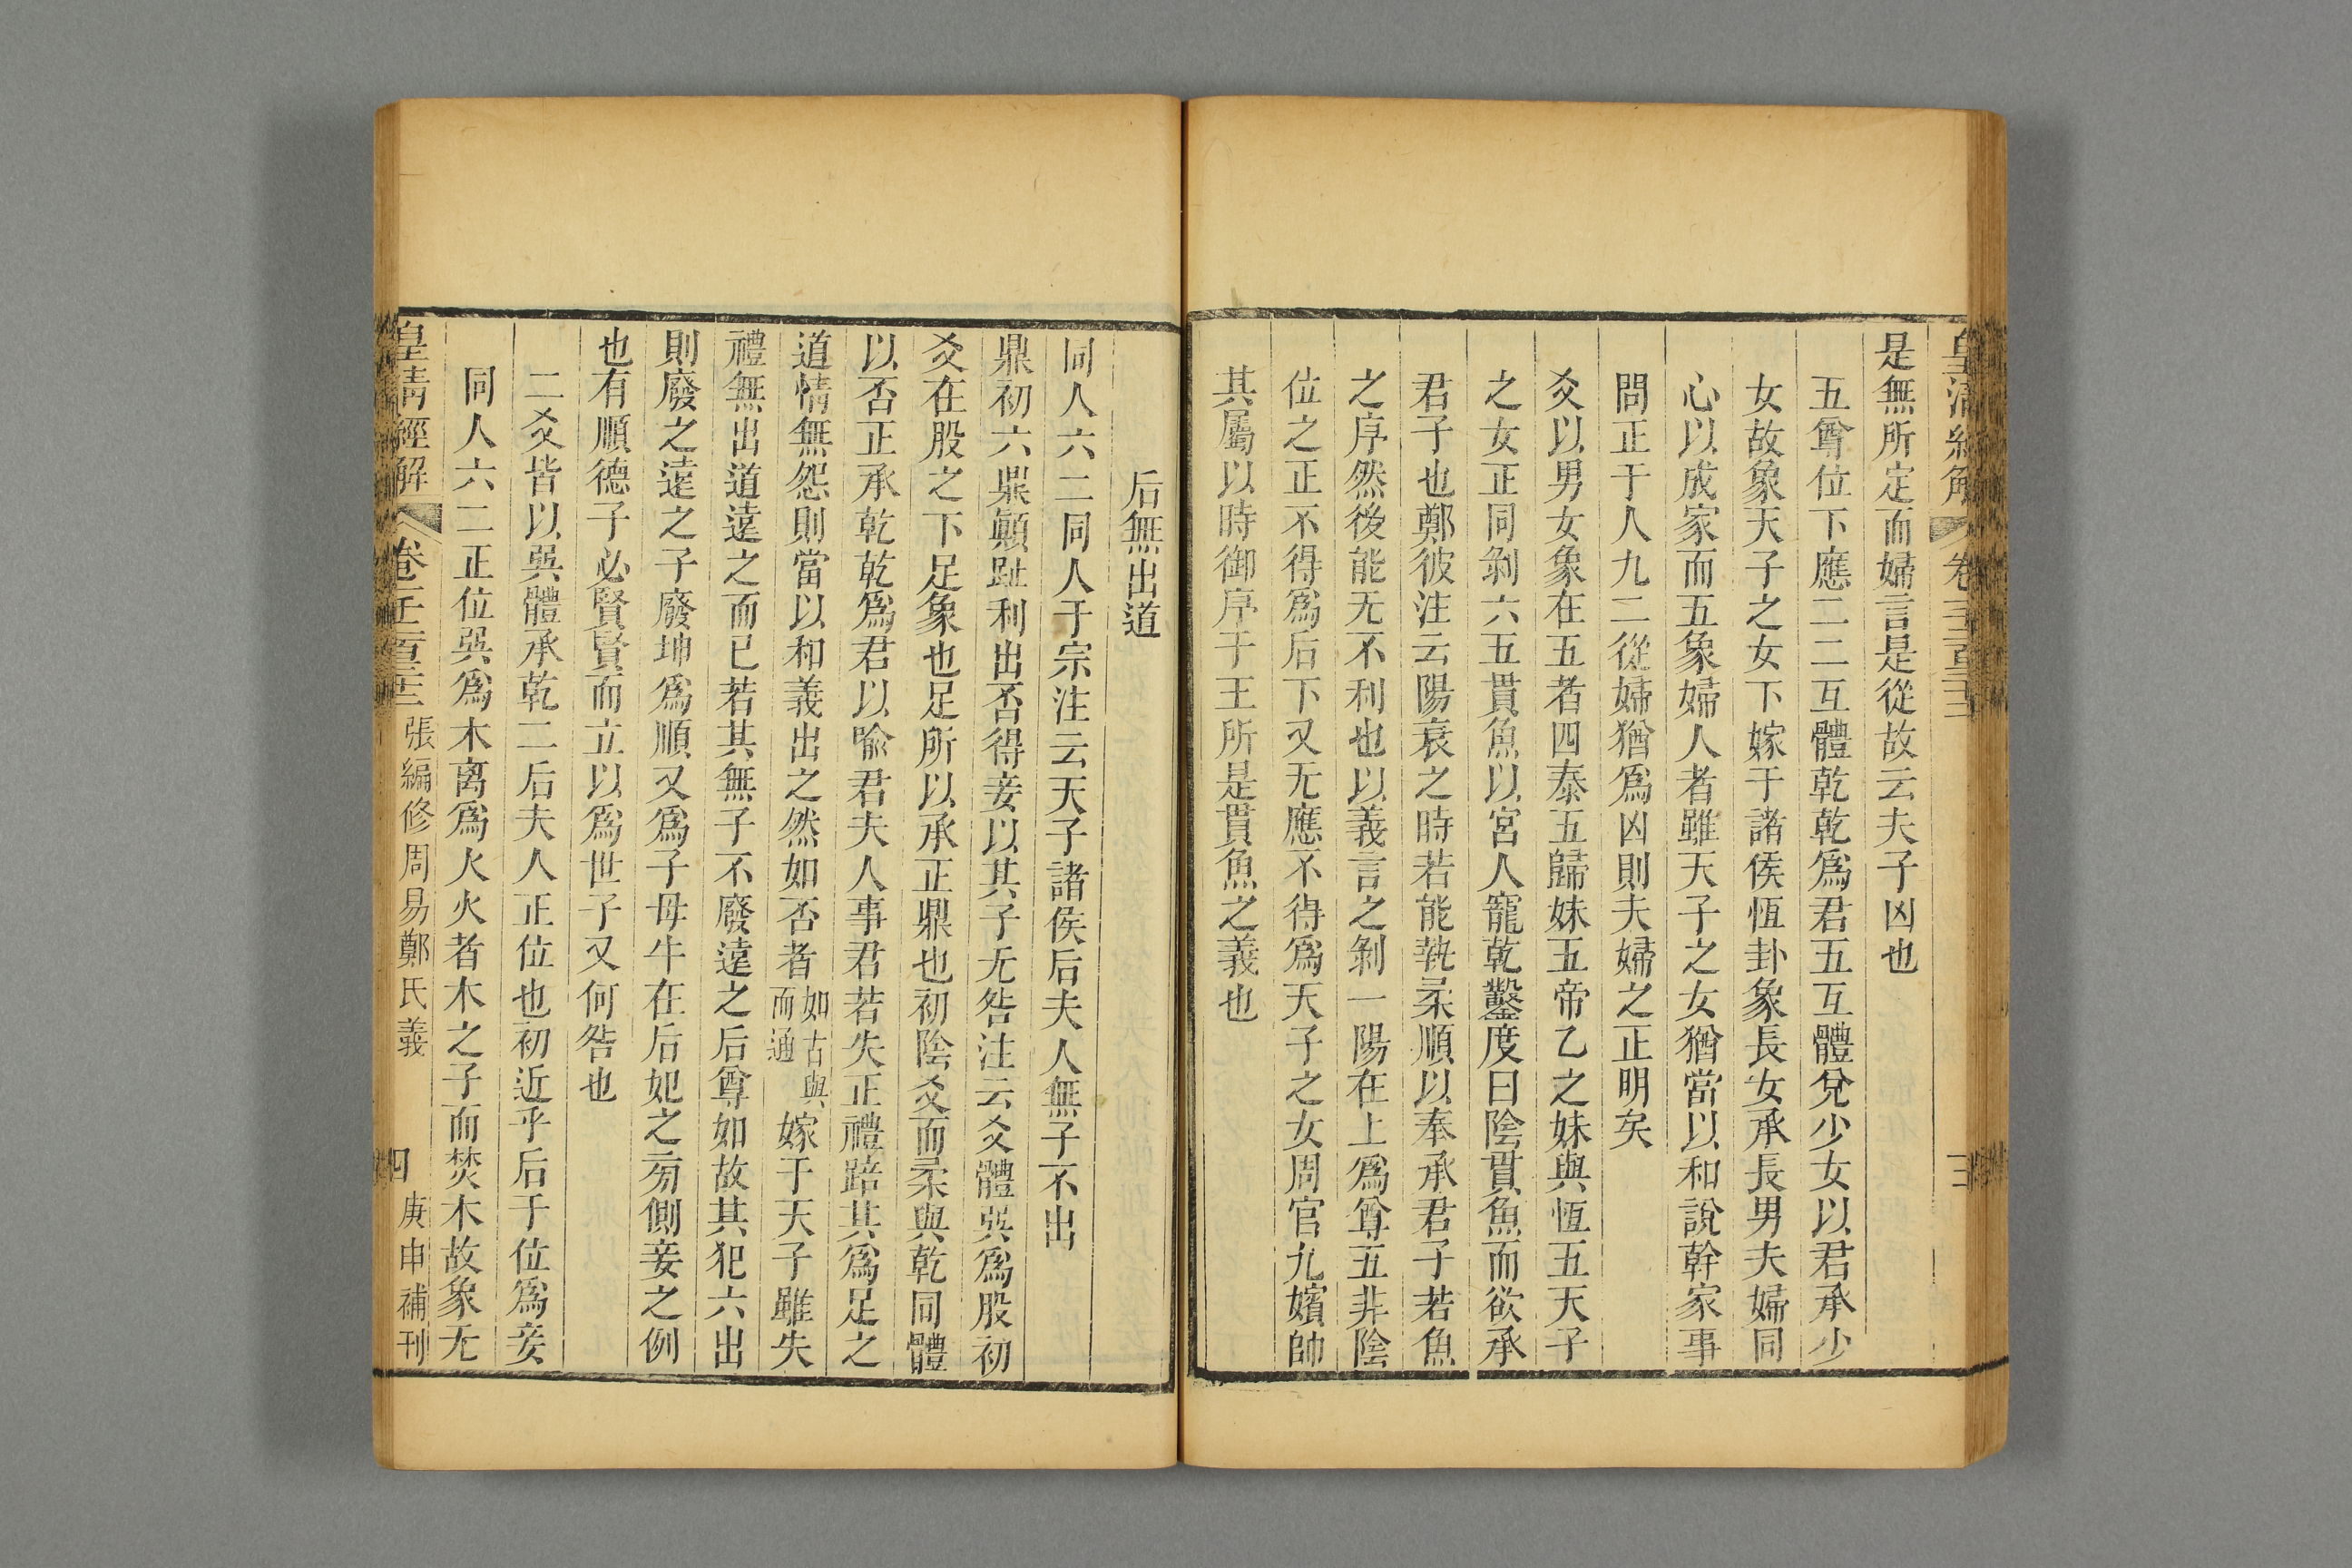 皇清經解 卷
是無所定而婦言是從故云夫子凶也
五尊位下應二二互體乾乾爲君五互體兌少女以君承少
女故象天子之女下嫁于諸侯恆卦象長女承長男夫婦同
心以成家而五象婦人者雖天子之女猶當以和說幹家事
問正于人九二從婦猶爲凶則夫婦之正明矣
爻以男女象在五者四泰五歸妹五帝乙之妹與恆五天子
之女正同剝六五貫魚以宮人寵乾鑿度曰陰貫魚而欲承
君子也鄭彼注云陽衰之時若能執柔順以奉承君子若魚
之序然後能无不利也以義言之剝一陽在上爲尊五非陰
位之正不得爲后下又无應不得爲天子之女周官九嬪帥
其屬以時御序于王所是貫魚之義也
后無出道
同人六二同人于宗注云天子諸侯后夫人無子不出
鼎初六鼎顚趾利出否得妾以其子无咎注云爻體巽爲股初
爻在股之下足象也足所以承正鼎也初陰爻而柔與乾同體
以否正承乾乾爲君以喩君夫人事君若失正禮踣其爲足之
道情無怨則當以和義出之然如否者如古與而通嫁于天子雖失
禮無出道遠之而已若其無子不廢遠之后尊如故其犯六出
則廢之遠之子廢坤爲順又爲子母牛在后妃之旁側妾之例
也有順德子必賢賢而立以爲世子又何咎也
二爻皆以巽體承乾二后夫人正位也初近乎后于位爲妾
同人六二正位巽爲木离爲火火者木之子而焚木故象无
皇清經解 卷一千二百三十三 張編修周易鄭氏義 四 庚申補刊